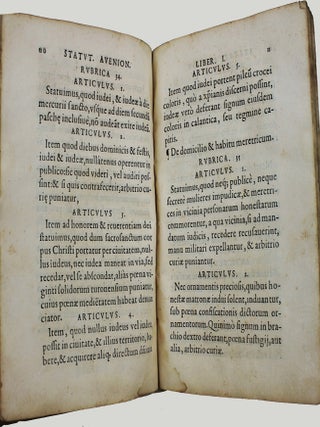 STATVT. AVENION.
RVBRICA 34.
ARTICVLVS. 1.
Statuimus, quod iudei, & iudeæ à die
mercurii sancto, vsque ad diem secundã
paschę inclusiuè, nõ audeãt exire iudeã.
ARTICVLVS 2.
Item quod diebus dominicis & festis,
iudei & iudeæ, nullatenus operentur in
publico: sic quod videri, vel audiri possint
: & si quis contrafecerit, arbitrio curię
puniatur,
ARTICVLVS 3.
Item ad honorem & reuerentiam dei
statuimus, quod dum sacrosanctum corpus
Christi portatur per ciuitatem, nullus
iudeus, nec iudea maneat in via, sed
recedat, vel se abscondat, aliàs pœna viginti
solidorum turonensium puniatur,
cuius pœnæ medietatem habeat denunciator.
ARTICVLVS. 4.
Item, quod nullus iudeus vel iudea,
possit in ciuitate, & illius territorio, habere,
& acquirere aliqđ directum dñium
LIBER. I.
ARTICVLVS. 5.
Item quod iudei portent pileũ crocei
coloris, quò a xpianis discerni possint,
iudeæ verò deferant signum eiusdem
coloris in calantica, seu tegmine capitis.
¶ De domicilio & habitu meretricum.
RVBRICA. 35
ARTICVLVS 1.
Statuimus, quod neq; publicè, neque
secretè mulieres impudicæ, & meretrices
in vicinia personarum honestarum
commorentur, & a vicinia, si ad mandatum
iudicis, recedere recusauerint,
manu militari expellantur, & arbitrio
curiæ puniantur.
ARTICVLVS. 2.
Nec ornamentis preciosis, quibus honestæ
matronæ indui solent, induantur,
sub pœna confiscationis dictorum ornamentorum.
Quinimò signum in brachio
dextro deferant, pœna fustigãdi,
aut alia, arbitrio curiæ.